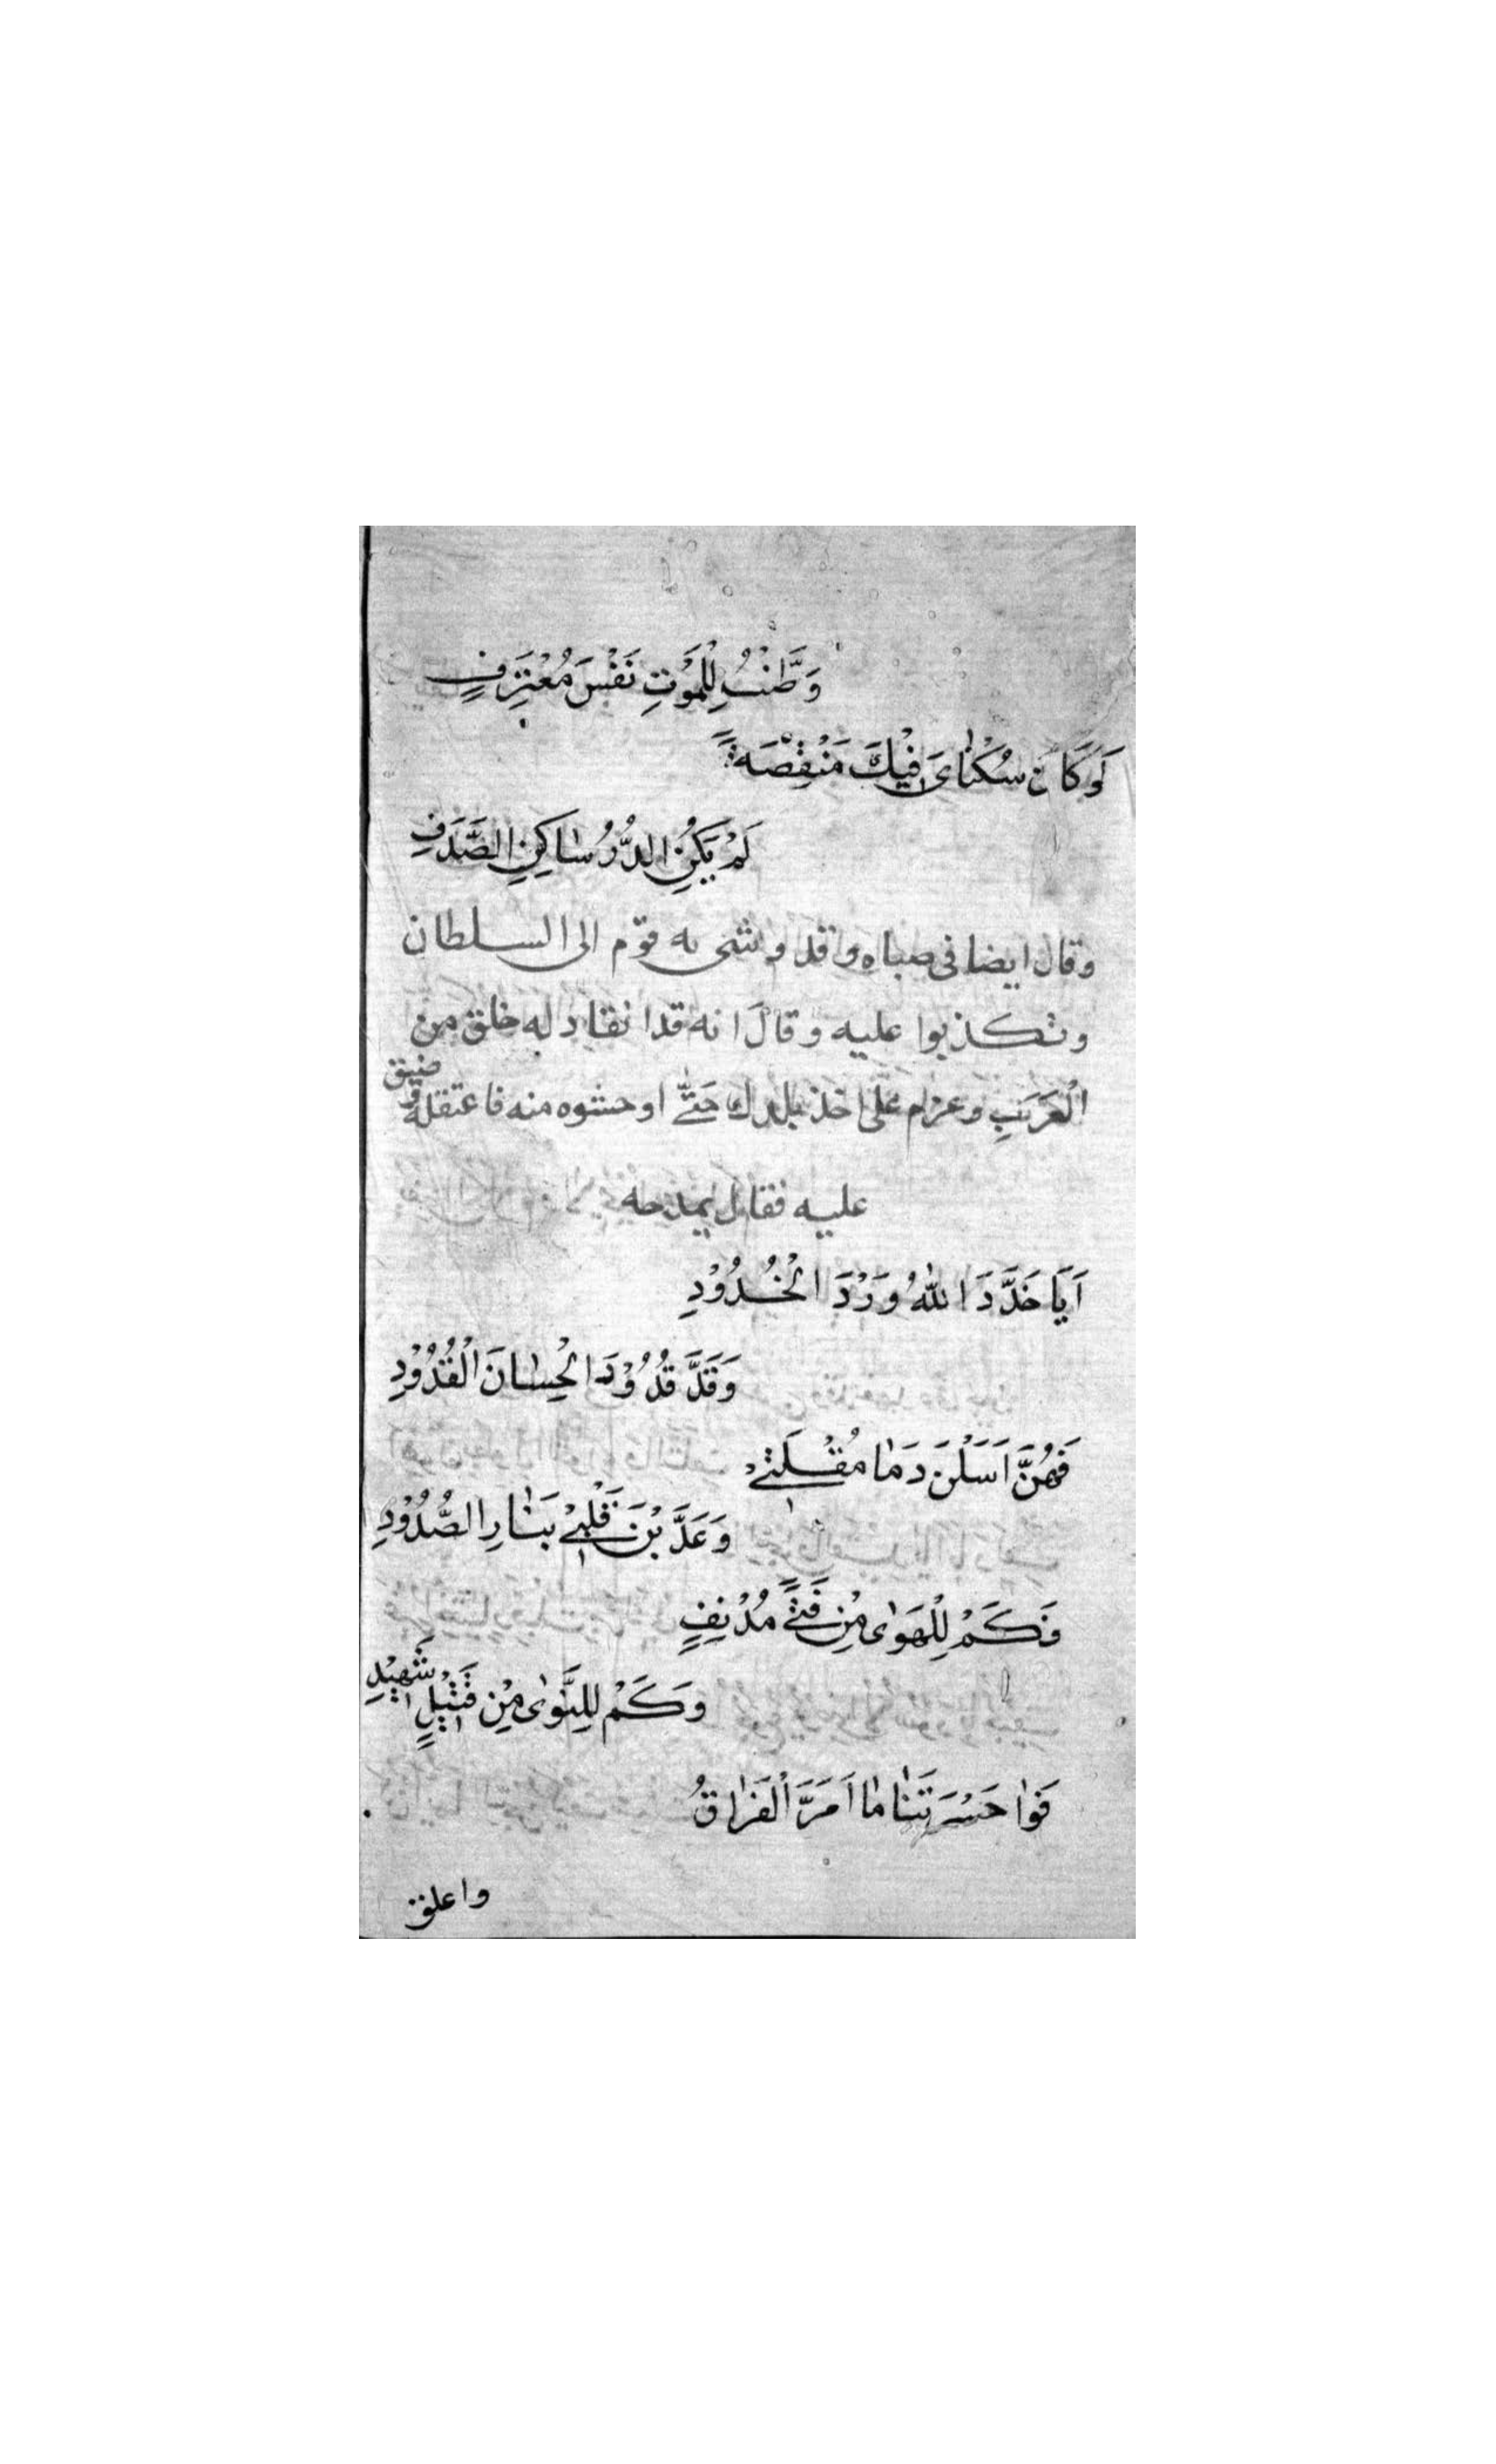 وَطَّنْتُ لِلْمَوْتِ نَفْسَ مُعْتَرِفٍ
لَوْ كَانَ سُكْنٰاىَ فِيْكَ مَنْقِصَةً
لَمْ يَكُنِ الدُّرُّ سٰاكِنِ الصَّدَفِ
وقال ايضا فى صباه وقد وشى به قوم الى السلطان
وتكذبوا عليه وقالَ انه قد انقاد له خلق من
الْعَرَبِ وعزم على اخذ بلدك حَتّٰى اوحشوه منه فاعتقله وضيق
عليه فقال يمدحه
اَيَا خَدَّدَ اللّٰهُ وَرْدَ الْخُدُوْدِ
وَقَدَّ قُدُوْدَ الْحِسٰانَ الْقُدُوْدِ
فَهُنَّ اَسَلْنَ دَمٰا مُقْلَتِيْ
وَعَدَّبْنَ قَلْبِيْ بَنٰارِ الصُّدُوْدِ
فَكَمْ لِلْهَوٰى مِنْ فَتًى مُدْنِفٍ
وَكَمْ لِلنَّوٰى مِنْ قَتِيْلٍ شَهِيْدِ
فَوٰا حَسْرَتَنٰا مٰا اَمَرَّ الْفَرٰاقُ
واعلق